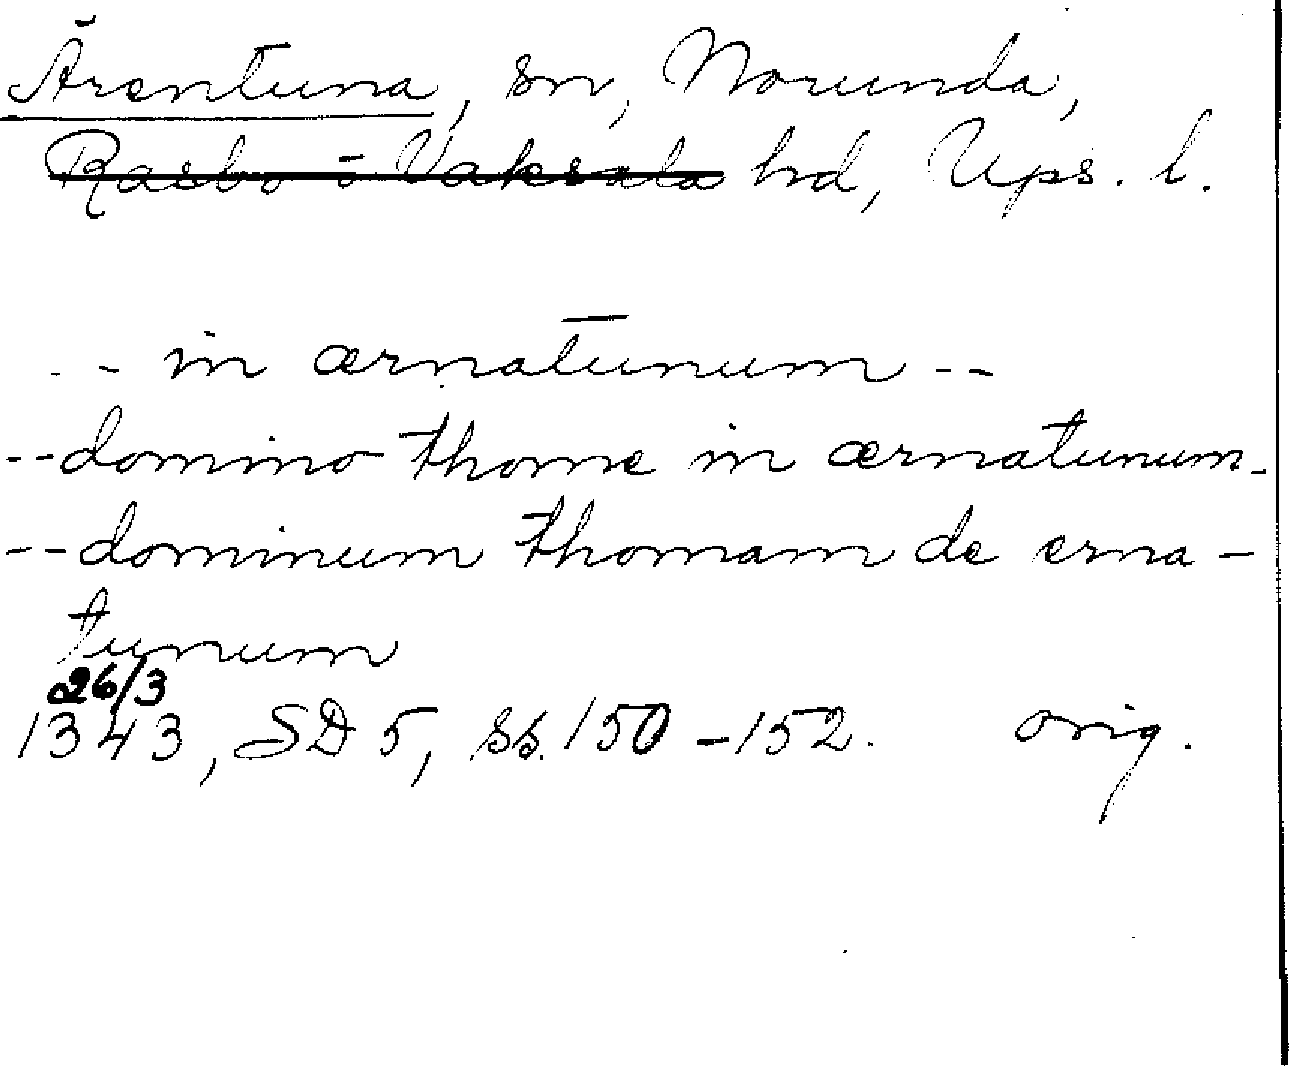 Ärentuna, sn, Norunda,
Rasbo o Vaksala hd, Ups. l.
-- in ærnatunum --
-- domino thome in ærnatunum -
-- dominum thomam de erna -
tunum
26/3
1343, SD 5, ss. 150 - 152. orig.